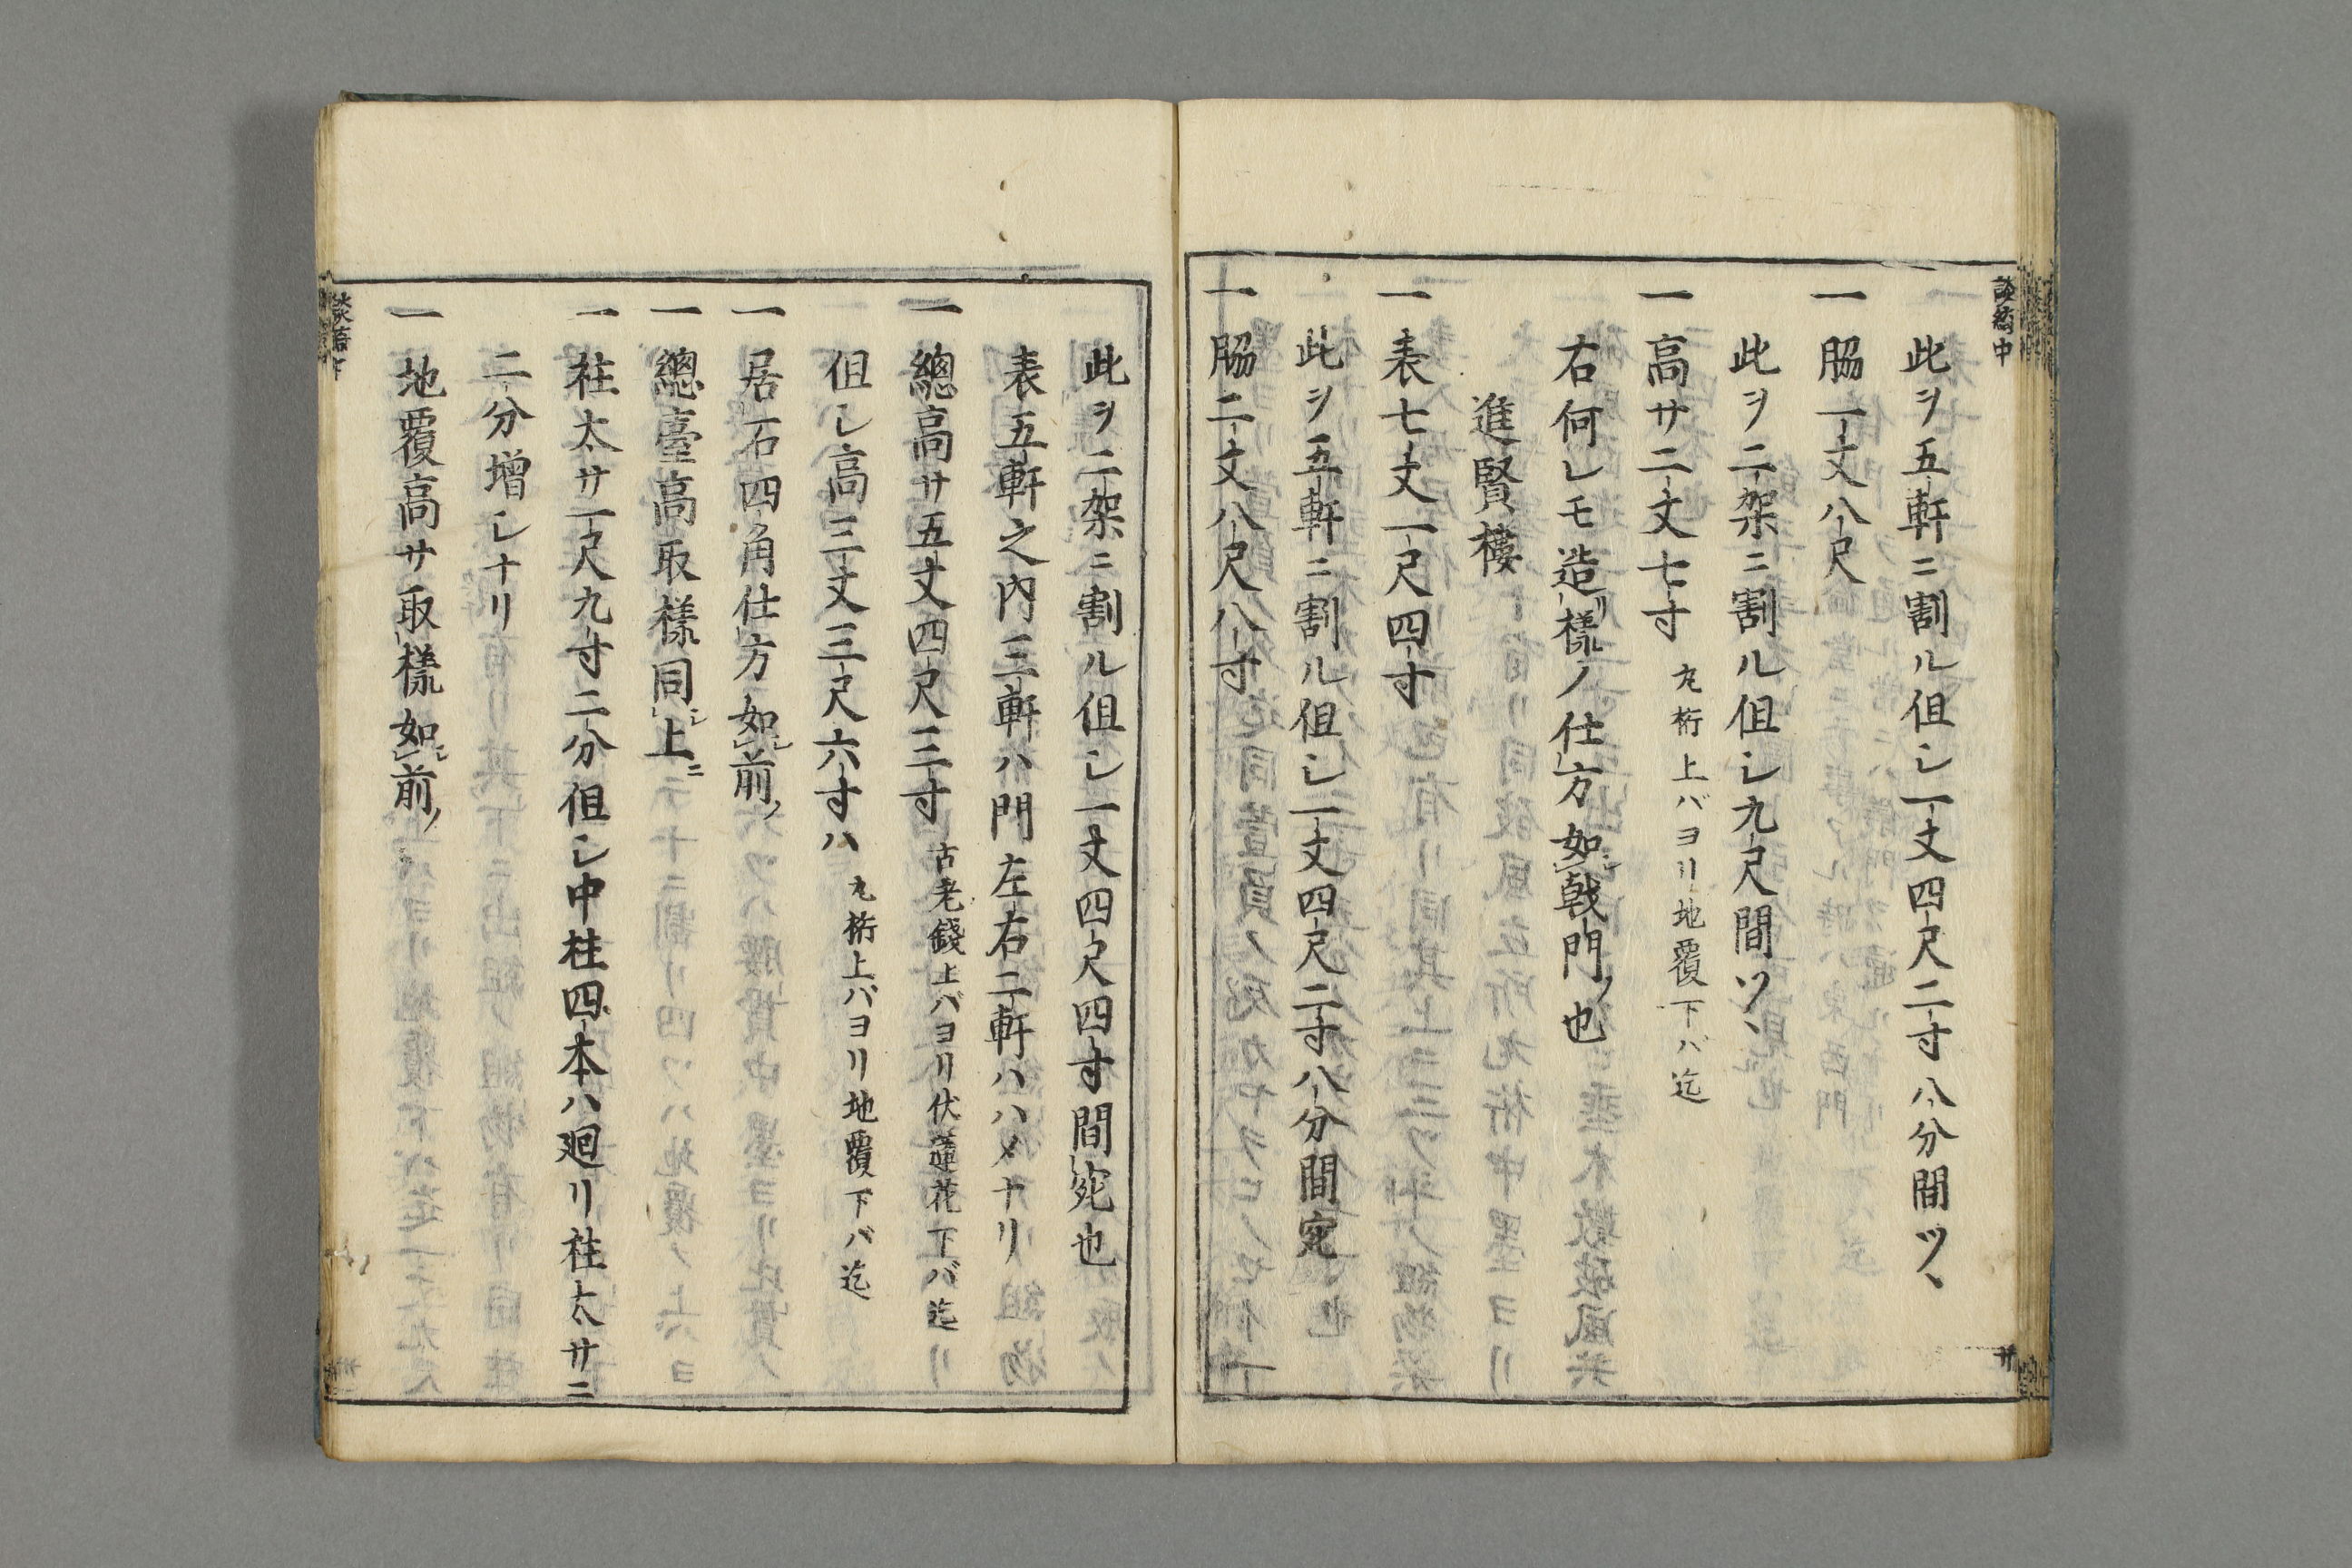 此ヲ五軒ニ割ル但シ一丈四尺二寸八分間ツヽ
一 脇一丈八尺
此ヲ二架ニ割ル但シ九尺間ツヽ
一 高サ二丈七寸 丸桁上バヨリ地覆下バ迄
右何レモ造リ樣ノ仕方如シ戟門ノ也
進賢樓
一 表七丈一尺四寸
此ヲ五軒ニ割ル但シ一丈四尺二寸八分間宛
一 脇二丈八尺八寸
此ヲ二架ニ割ル但シ一丈四尺四寸間宛也
表五軒之內三軒ハ門左右二軒ハハメナリ
一 總高サ五丈四尺三寸 古老錢上バヨリ伏蓮花下バ迄
但シ高三丈三尺六寸ハ 丸桁上バヨリ地覆下バ迄
一 居石四角仕方如シ前ノ
一 總臺高取樣同シ上ニ
一 柱太サ一尺九寸二分但シ中柱四本ハ廻リ柱太サニ
二分增シナリ
一 地覆高サ取樣如シ前ノ